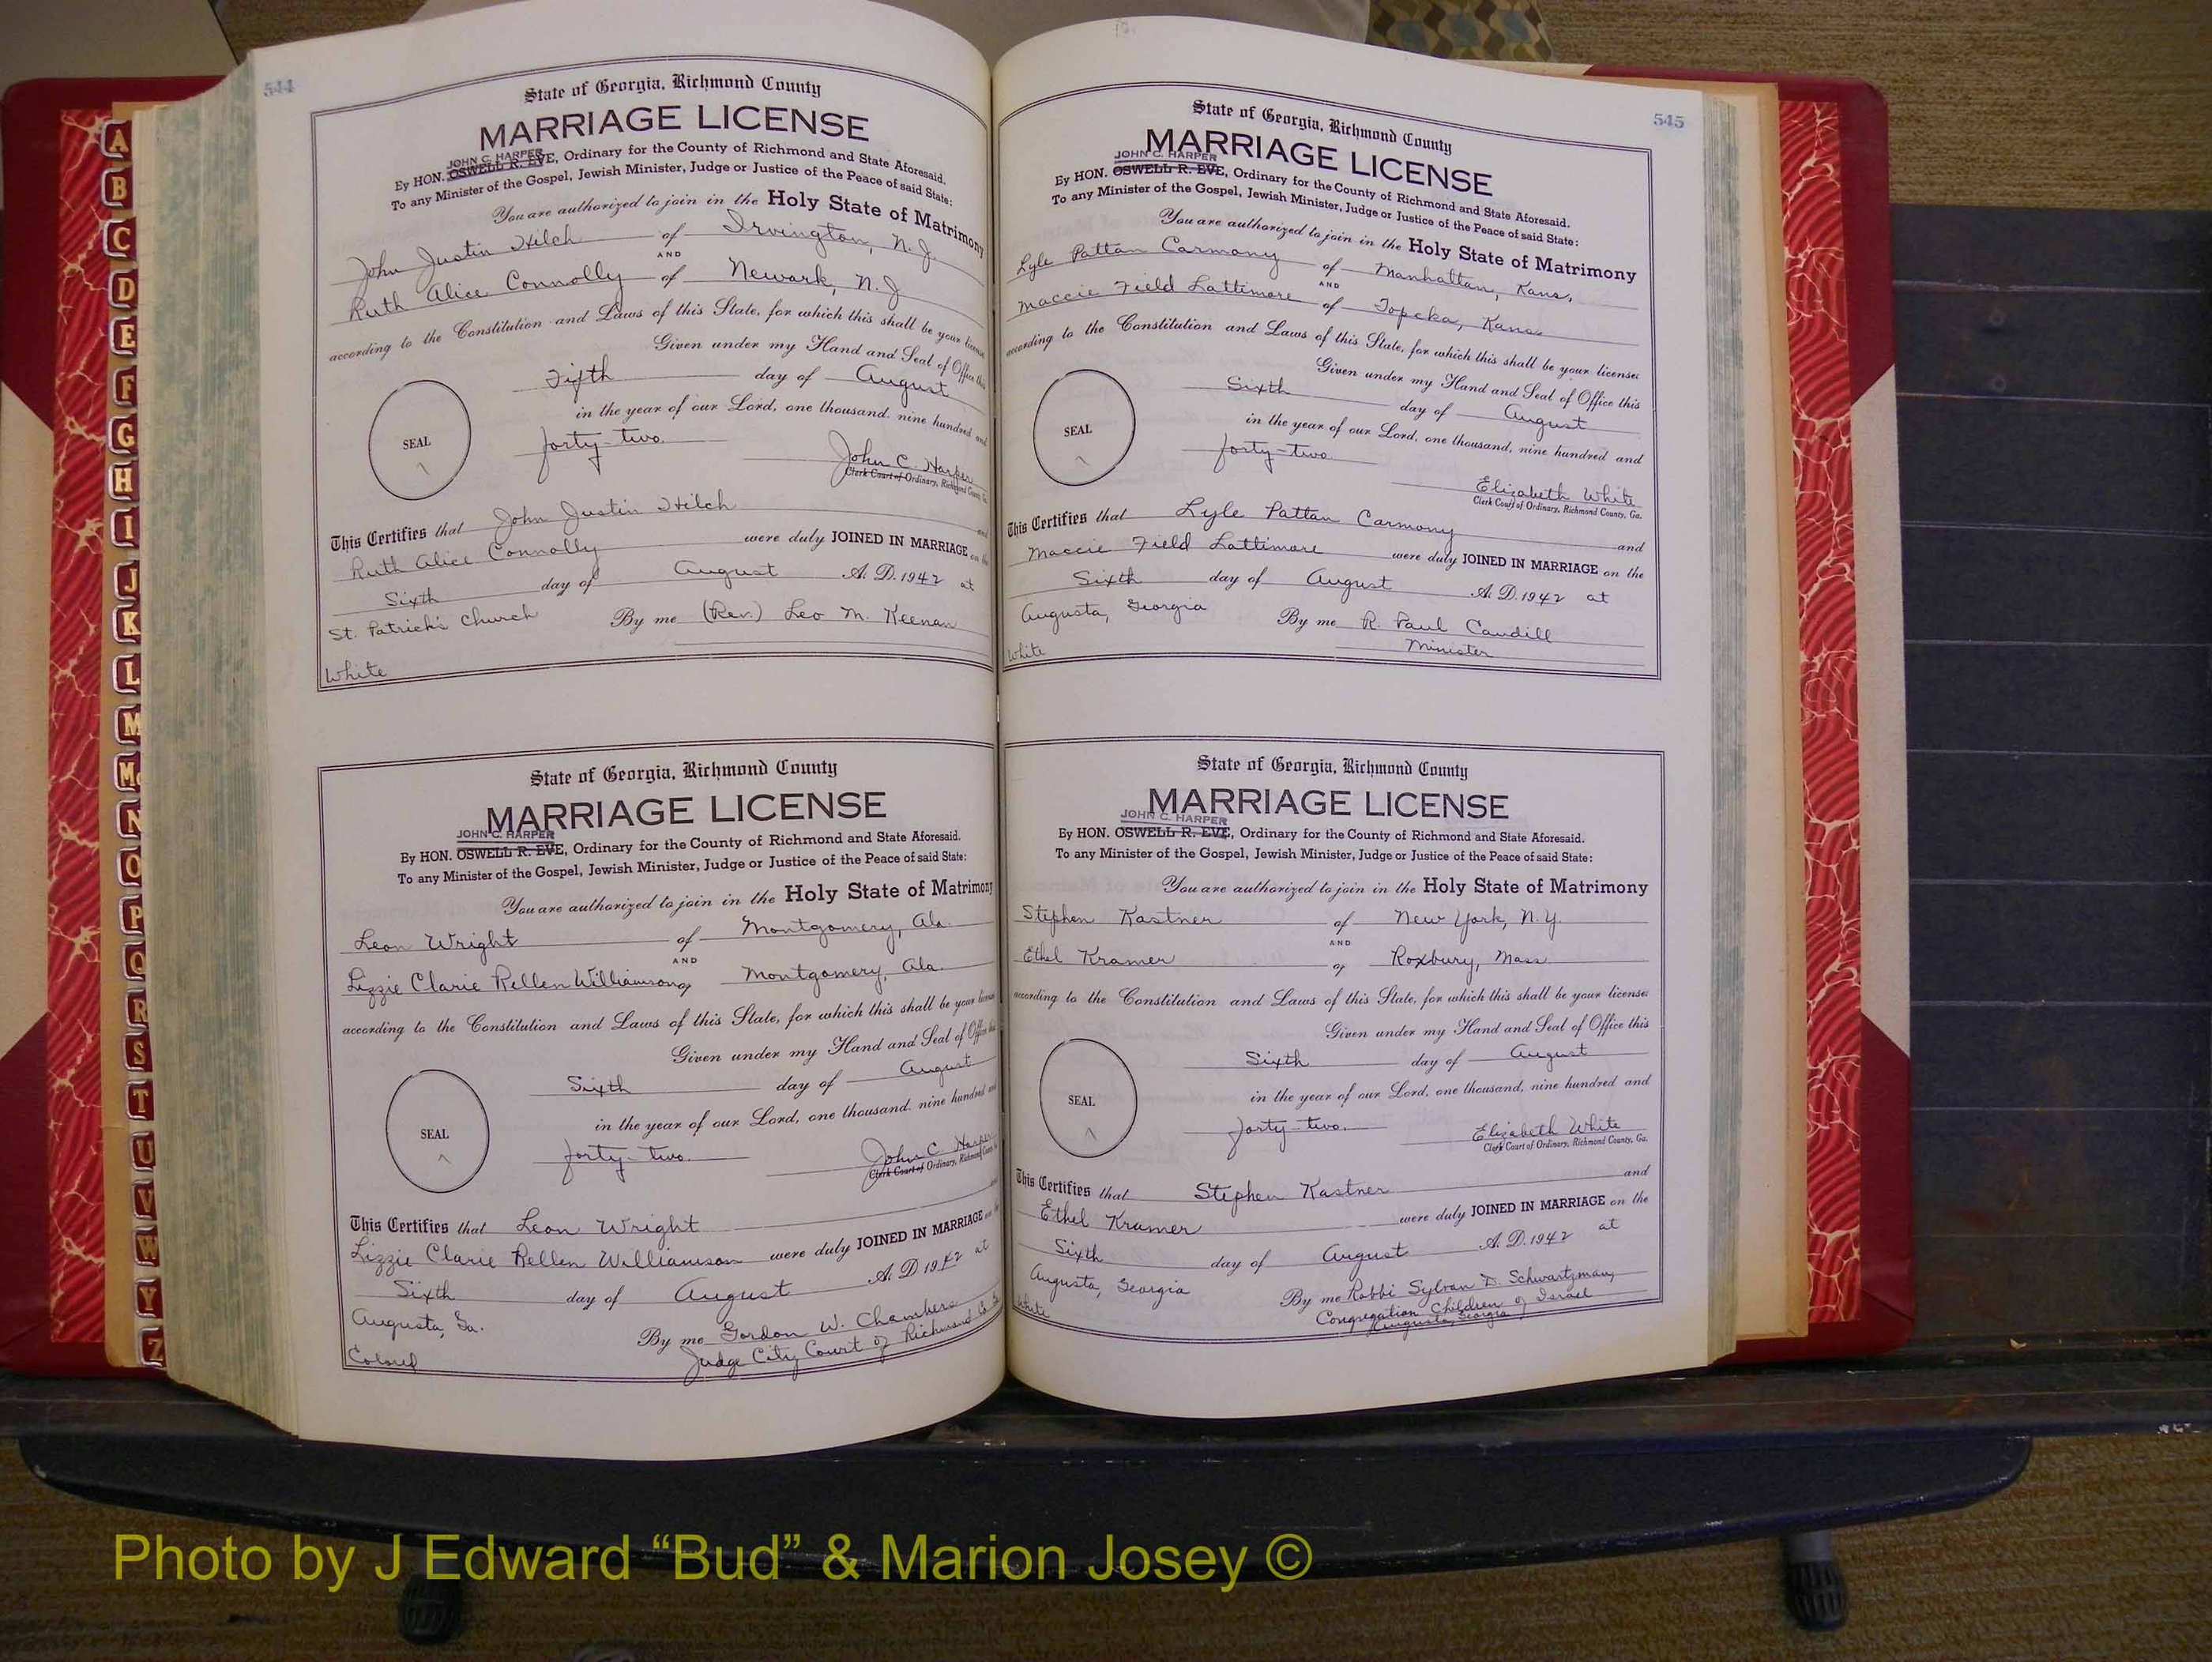 544
State of Georgia, Richmond County
MARRIAGE LICENSE
JOHN C. HARPER
By HON. OSWELL R. EVE, Ordinary for the County of Richmond and State Aforesaid.
To any Minister of the Gospel, Jewish Minister, Judge or Justice of the Peace of said State:
You are authorized to join in the Holy State of Matrimony
John Justin Hilch of Irvington, N. J.
AND
Ruth Alice Connolly of Newark, N. J
according to the Constitution and Laws of this State, for which this shall be your license
Given under my Hand and Seal of Office this
Fifth day of August
in the year of our Lord, one thousand. nine hundred and
SEAL
forty-two.
John C. Harper
Clerk Court of Ordinary, Richmond County, Ga.
This Certifies that John Justin Hilch and
Ruth Alice Connolly were duly JOINED IN MARRIAGE on the
Sixth day of August A. D. 1942 at
St. Patrick's Church By me (Rev.) Leo M. Keenan
White
State of Georgia, Richmond County
MARRIAGE LICENSE
JOHN C. HARPER
By HON. OSWELL R. EVE, Ordinary for the County of Richmond and State Aforesaid.
To any Minister of the Gospel, Jewish Minister, Judge or Justice of the Peace of said State:
You are authorized to join in the Holy State of Matrimony
Leon Wright of Montgomery, Ala.
AND
Lizzie Clarie Rellen Williamson of Montgomery, Ala.
according to the Constitution and Laws of this State, for which this shall be your license
Given under my Hand and Seal of Office this
Sixth day of August
in the year of our Lord, one thousand. nine hundred and
SEAL
forty-two.
John C. Harper
Clerk Court of Ordinary, Richmond County
This Certifies that Leon Wright
Lizzie Clarie Rellen Williamson were duly JOINED IN MARRIAGE on
Sixth day of August A. D 1942 at
Augusta, Ga. By me Gordon W. Chambers
Judge City Court of Richmond Co. Ga
Colored
545
State of Georgia, Richmond County
MARRIAGE LICENSE
JOHN C. HARPER
By HON. OSWELL R. EVE, Ordinary for the County of Richmond and State Aforesaid.
To any Minister of the Gospel, Jewish Minister, Judge or Justice of the Peace of said State:
You are authorized to join in the Holy State of Matrimony
Lyle Pattan Carmony of Manhattan, Kans.
AND
Maccie Field Lattimore of Topeka, Kans.
according to the Constitution and Laws of this State, for which this shall be your license:
Given under my Hand and Seal of Office this
Sixth day of August
in the year of our Lord, one thousand, nine hundred and
SEAL
forty-two
Elizabeth White
Clerk Court of Ordinary, Richmond County, Ga.
This Certifies that Lyle Pattan Carmony and
Maccie Field Lattimore were duly JOINED IN MARRIAGE on the
Sixth day of August A. D. 1942 at
Augusta, Georgia By me R. Paul Caudill
Minister
White
State of Georgia, Richmond County
MARRIAGE LICENSE
JOHN C. HARPER
By HON. OSWELL R. EVE, Ordinary for the County of Richmond and State Aforesaid.
To any Minister of the Gospel, Jewish Minister, Judge or Justice of the Peace of said State:
You are authorized to join in the Holy State of Matrimony
Stephen Kastner of New York, N. Y.
AND
Ethel Kramer of Roxbury, Mass.
according to the Constitution and Laws of this State, for which this shall be your license:
Given under my Hand and Seal of Office this
Sixth day of August
in the year of our Lord, one thousand, nine hundred and
SEAL
forty-two.
Elizabeth White
Clerk Court of Ordinary, Richmond County, Ga.
This Certifies that Stephen Kastner and
Ethel Kramer were duly JOINED IN MARRIAGE on the
Sixth day of August A. D. 1942 at
Augusta, Georgia By me Rabbi Sylvan D. Schwartzman,
Congregation Children of Israel
Augusta, Georgia
White
A
B
C
D
E
F
G
H
I
J
K
L
M
Mc
N
O
P
Q
R
S
T
U
V
W
Y
Z
Photo by J Edward “Bud” & Marion Josey ©